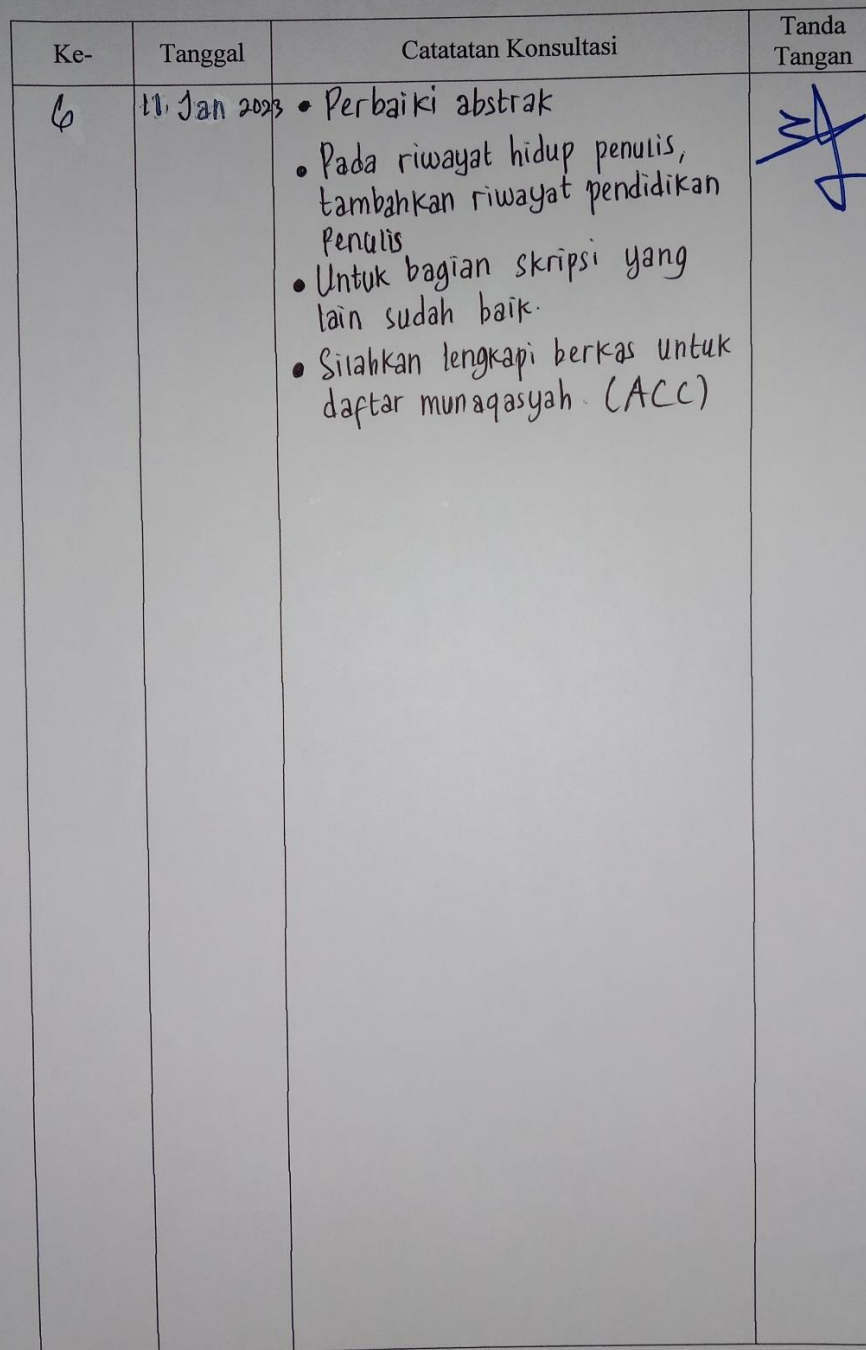 Ke- Tanggal Catatatan Konsultasi Tanda
Tangan
6 11, Jan 2023 • Perbaiki abstrak
• Pada riwayat hidup penulis,
tambahkan riwayat pendidikan
Penulis
• Untuk bagian skripsi yang
lain sudah baik.
• Silahkan lengkapi berkas untuk
daftar munaqasyah. (ACC)